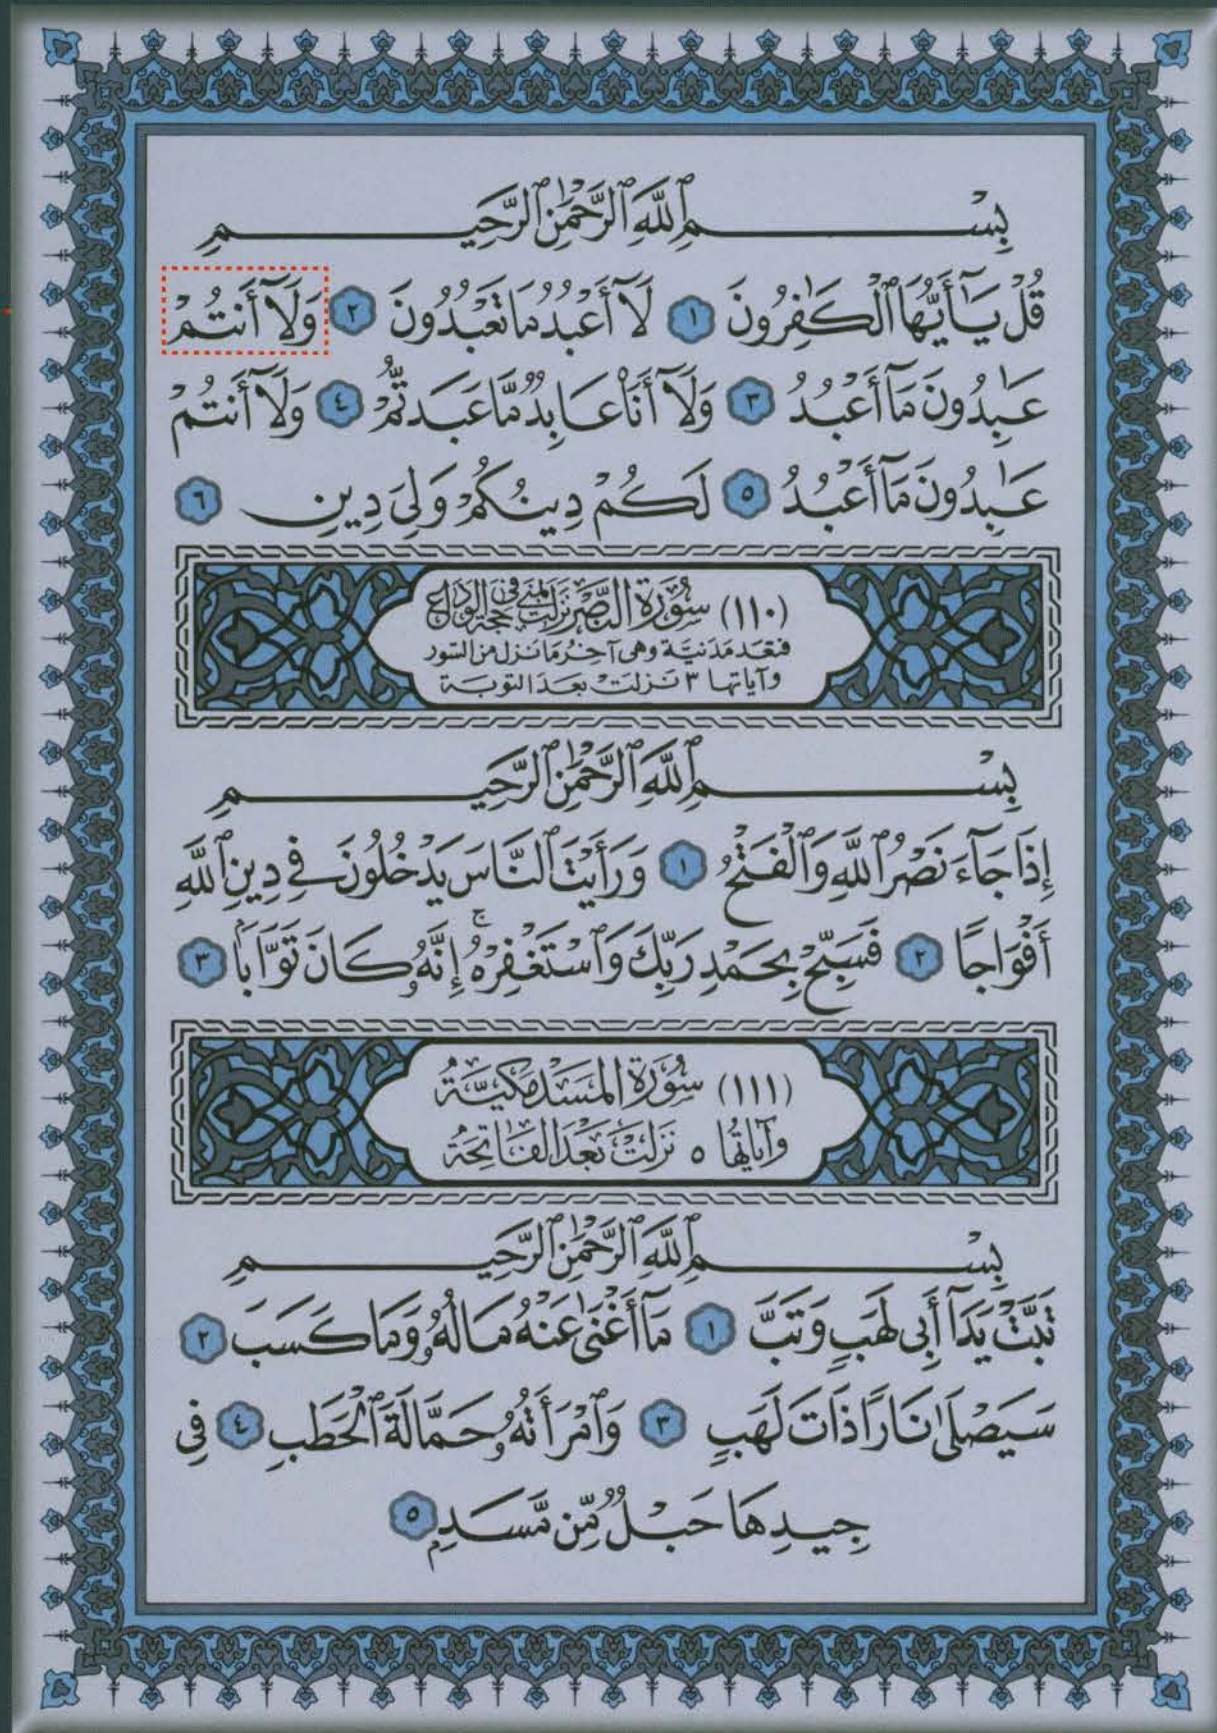 بِسْمِ ٱللَّهِ ٱلرَّحْمَٰنِ ٱلرَّحِيمِ
قُلْ يَـٰٓأَيُّهَا ٱلْكَـٰفِرُونَ ١ لَآ أَعْبُدُ مَا تَعْبُدُونَ ٢ وَلَآ أَنتُمْ
عَـٰبِدُونَ مَآ أَعْبُدُ ٣ وَلَآ أَنَا۠ عَابِدٌ مَّا عَبَدتُّمْ ٤ وَلَآ أَنتُمْ
عَـٰبِدُونَ مَآ أَعْبُدُ ٥ لَكُمْ دِينُكُمْ وَلِىَ دِينِ ٦
(١١٠) سُورَة النَّصْر نَزَلَت بمنى فى حجة الوداع
فتعد مَدَنيَّة وهى آخِرُ مَا نزل من السّور
وآياتها ٣ نَزلتْ بعدَ التوبَة
بِسْمِ ٱللَّهِ ٱلرَّحْمَٰنِ ٱلرَّحِيمِ
إِذَا جَآءَ نَصْرُ ٱللَّهِ وَٱلْفَتْحُ ١ وَرَأَيْتَ ٱلنَّاسَ يَدْخُلُونَ فِى دِينِ ٱللَّهِ
أَفْوَاجًا ٢ فَسَبِّحْ بِحَمْدِ رَبِّكَ وَٱسْتَغْفِرْهُ ۚ إِنَّهُۥ كَانَ تَوَّابًۢا ٣
(١١١) سُورَة المَسَد مَكيَّةُ
وآياتُها ٥ نَزلَتْ بَعْدَ الفَاتِحَة
بِسْمِ ٱللَّهِ ٱلرَّحْمَٰنِ ٱلرَّحِيمِ
تَبَّتْ يَدَآ أَبِى لَهَبٍ وَتَبَّ ١ مَآ أَغْنَىٰ عَنْهُ مَالُهُۥ وَمَا كَسَبَ ٢
سَيَصْلَىٰ نَارًا ذَاتَ لَهَبٍ ٣ وَٱمْرَأَتُهُۥ حَمَّالَةَ ٱلْحَطَبِ ٤ فِى
جِيدِهَا حَبْلٌ مِّن مَّسَدٍۭ ٥